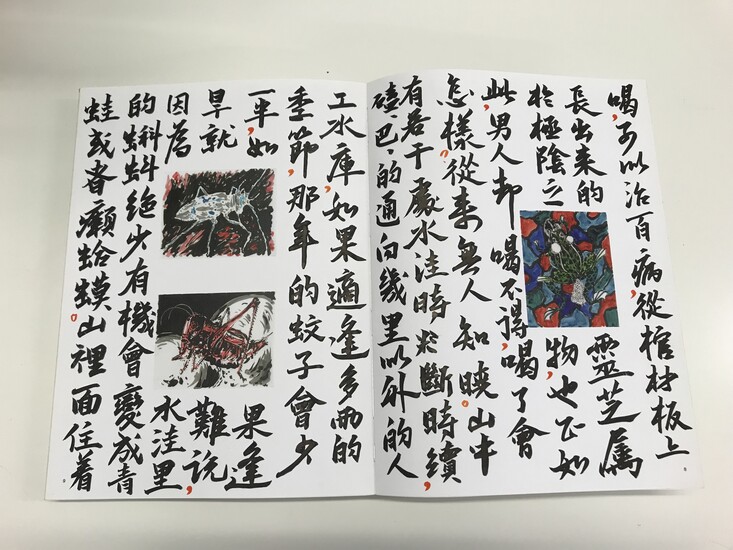 喝,可以治百病,從棺材板上
長出来的靈芝属
於極陰之物,也正如
此,男人却喝不得,喝了會
怎樣,從来無人知曉。山中
有若干處水洼時於斷時續,
磕巴的通向幾里以外的人
8
工水庫,如果適逢多雨的
季節,那年的蚊子會少
一半,如果逢
旱就難説,
因為水洼里
的蝌蚪绝少有機會變成青
蛙或者癩蛤蟆。山裡面住着
9